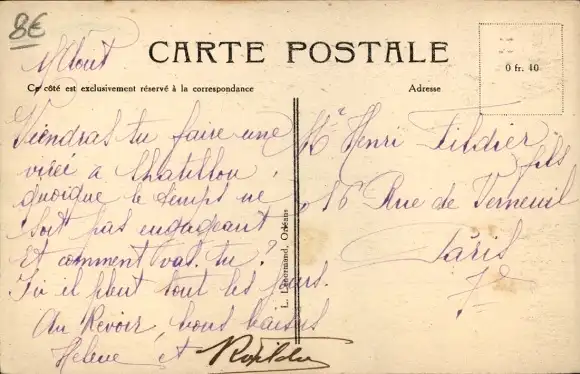 8€
Août
CARTE POSTALE
0 fr. 40
Ce côté est exclusivement réservé à la correspondance
Adresse
Viendras tu faire une
virée a Chatillon,
quoique le temps ne
soit pas engageant
Et comment vas tu ?
Ici il pleut tout les jours.
Au Revoir, bons baisers
Helene et
Mr Henri Fildier
fils
16 Rue de Verneuil
Paris
7e
L. Lenormand, Orléans